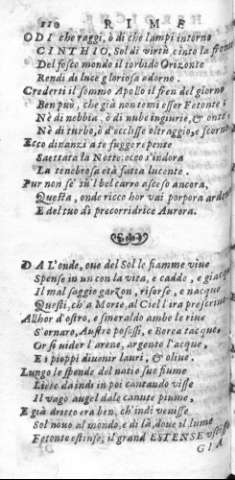 110 RIME
ODI che raggi, ò di che lampi intorno
CINTHIO, Sol di virtù cinto la fronte
Del fosco mondo il torbido Orizonte
Rendi di luce gloriosa adorno.
Crederti il sommo Apollo il fren del giorno
Ben può, che già non temi esser Fetonte:
Nè di nebbia, ò di nube ingiurie, & onte
Nè di turbo, ò d'ecclisse oltraggio, e scorno
Ecco dinanzi a te fuggerepente
Saettata la Notte: ecco s'indora
La tenebrosa età fatta lucente.
Pur non sè sù'l bel carro asceso ancora,
Questa, onde ricco hor vai porpora arden
E del tuo dì precorridrice Aurora.
DAL'onde, oue del Sol le fiamme viue
Spense in un con la vita, e cadde, e giacque
Il mal saggio garzon, risorse, e nacque
Questi, ch'a Morte, al Ciel l'ira prescriue
Allhor d'ostro, e smeraldo ambe le riue
S'ornaro, Austro posossi, e Borea tacque,
Or si vider l'arene, argento l'acque,
E i pioppi diuenir lauri, & oliue.
Lungo le sponde del natio suo fiume
Lieto da indi in poi cantando visse
Il vago augel dale canute piume,
E già dritto era ben, ch'indi venisse
Sol nouo al mondo, e di là, doue il lume
Fetonte estinse, il grand'ESTENSE
GIA